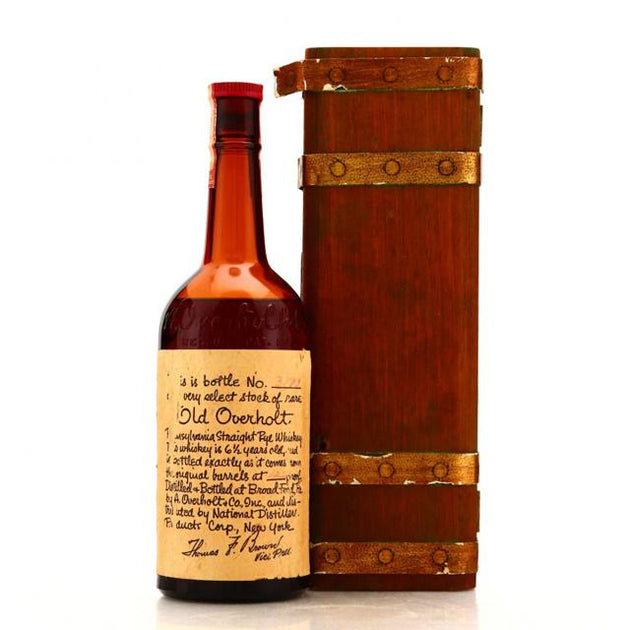 Overholt
is is bottle No.
very select stock of rare
Old Overholt.
nsylvania Straight Rye Whiskey
s whiskey is 6½ years old, nd
ottled exactly as it comes rom
he original barrels at ___ proof
Distilled & Bottled at Broad Ford, Pa.
by A. Overholt & Co., Inc., and dis-
uted by National Distillers
Products Corp., New York
Thomas F. Brown
Vice Pres.